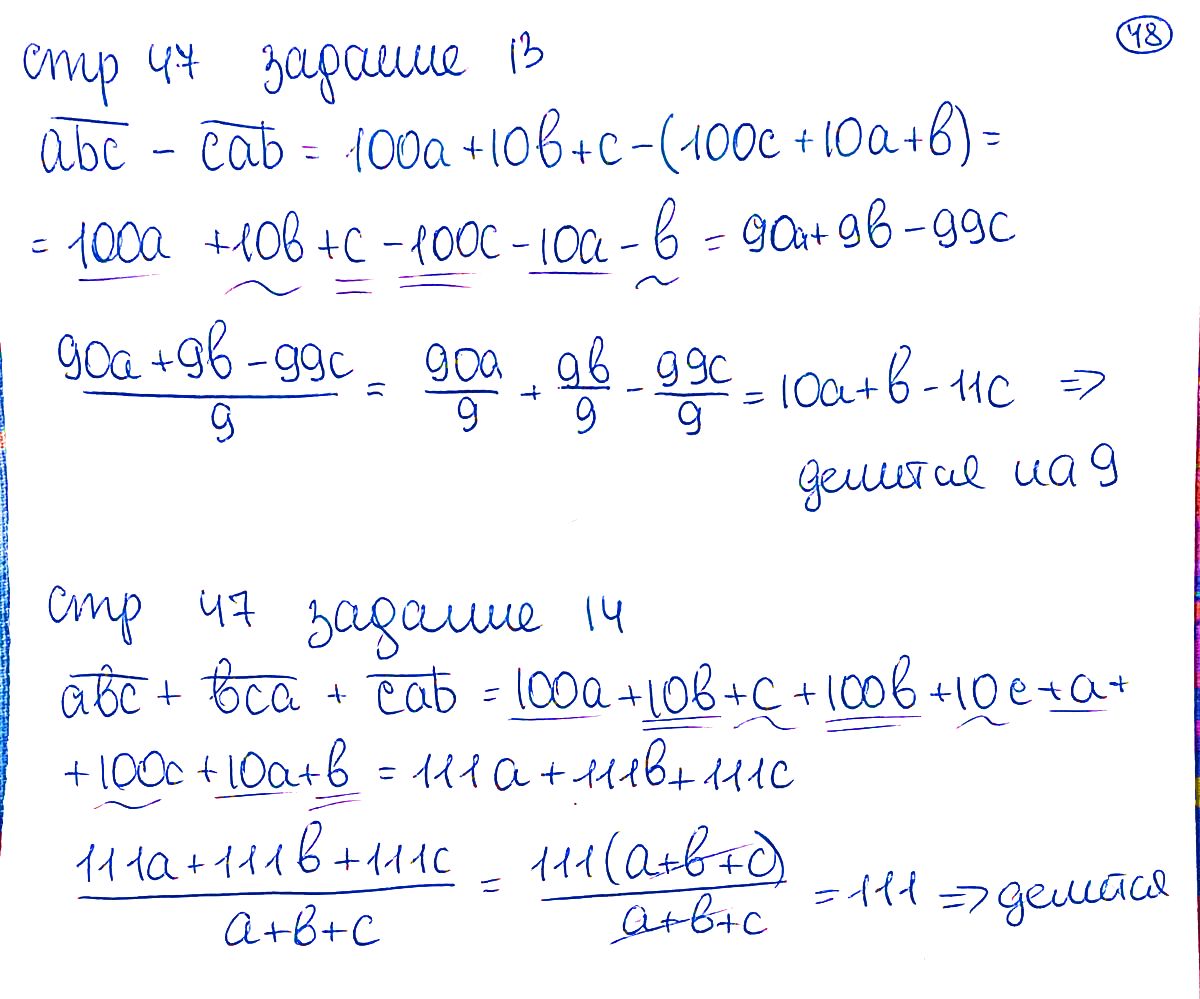 48
стр 47 задание 13
abc - cab = 100a + 10b + c - (100c + 10a + b) =
= 100a + 10b + c - 100c - 10a - b = 90a + 9b - 99c
(90a + 9b - 99c)/9 = 90a/9 + 9b/9 - 99c/9 = 10a + b - 11c ⇒
делится на 9
стр 47 задание 14
abc + bca + cab = 100a + 10b + c + 100b + 10c + a +
+ 100c + 10a + b = 111a + 111b + 111c
(111a + 111b + 111c)/(a + b + c) = 111(a + b + c)/(a + b + c) = 111 ⇒ делится